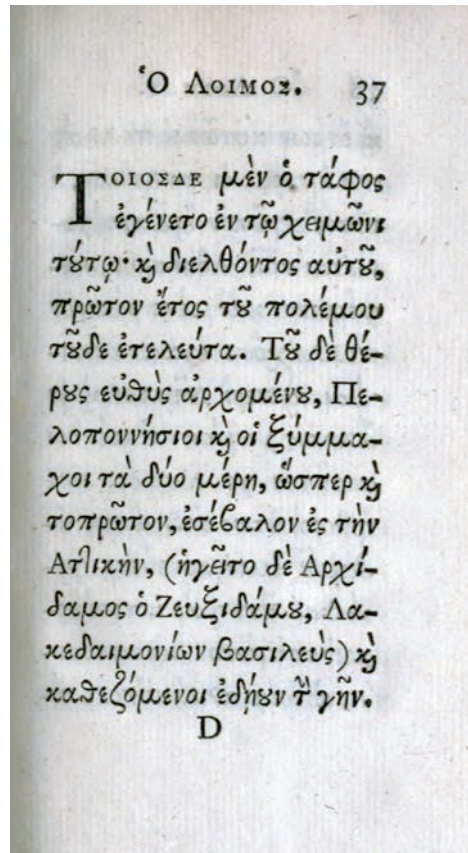 Ὁ Λοιμος. 37
Τοιοσδε μὲν ὁ τάφος
ἐγένετο ἐν τῷ χειμῶνι
τȣ́τῳ· ϗ̀ διελθόντος αὐτȣ͂,
πρῶτον ἔτος τȣ͂ πολέμου
τȣ͂δε ἐτελεύτα. Τȣ͂ δὲ θέ-
ρȣς εὐθὺς ἀρχομένȣ, Πε-
λοποννήσιοι ϗ̀ οἱ ξύμμα-
χοι τὰ δύο μέρη, ὥσπερ ϗ̀
τοπρῶτον, ἐσέϐαλον ἐς τὴν
Ατlικὴν, (ἡγεῖτο δὲ Αρχί-
δαμος ὁ Ζευξιδάμȣ, Λα-
κεδαιμονίων βασιλεὺς) ϗ̀
καθεζόμενοι ἐδῄȣν τὴν γῆν.
D